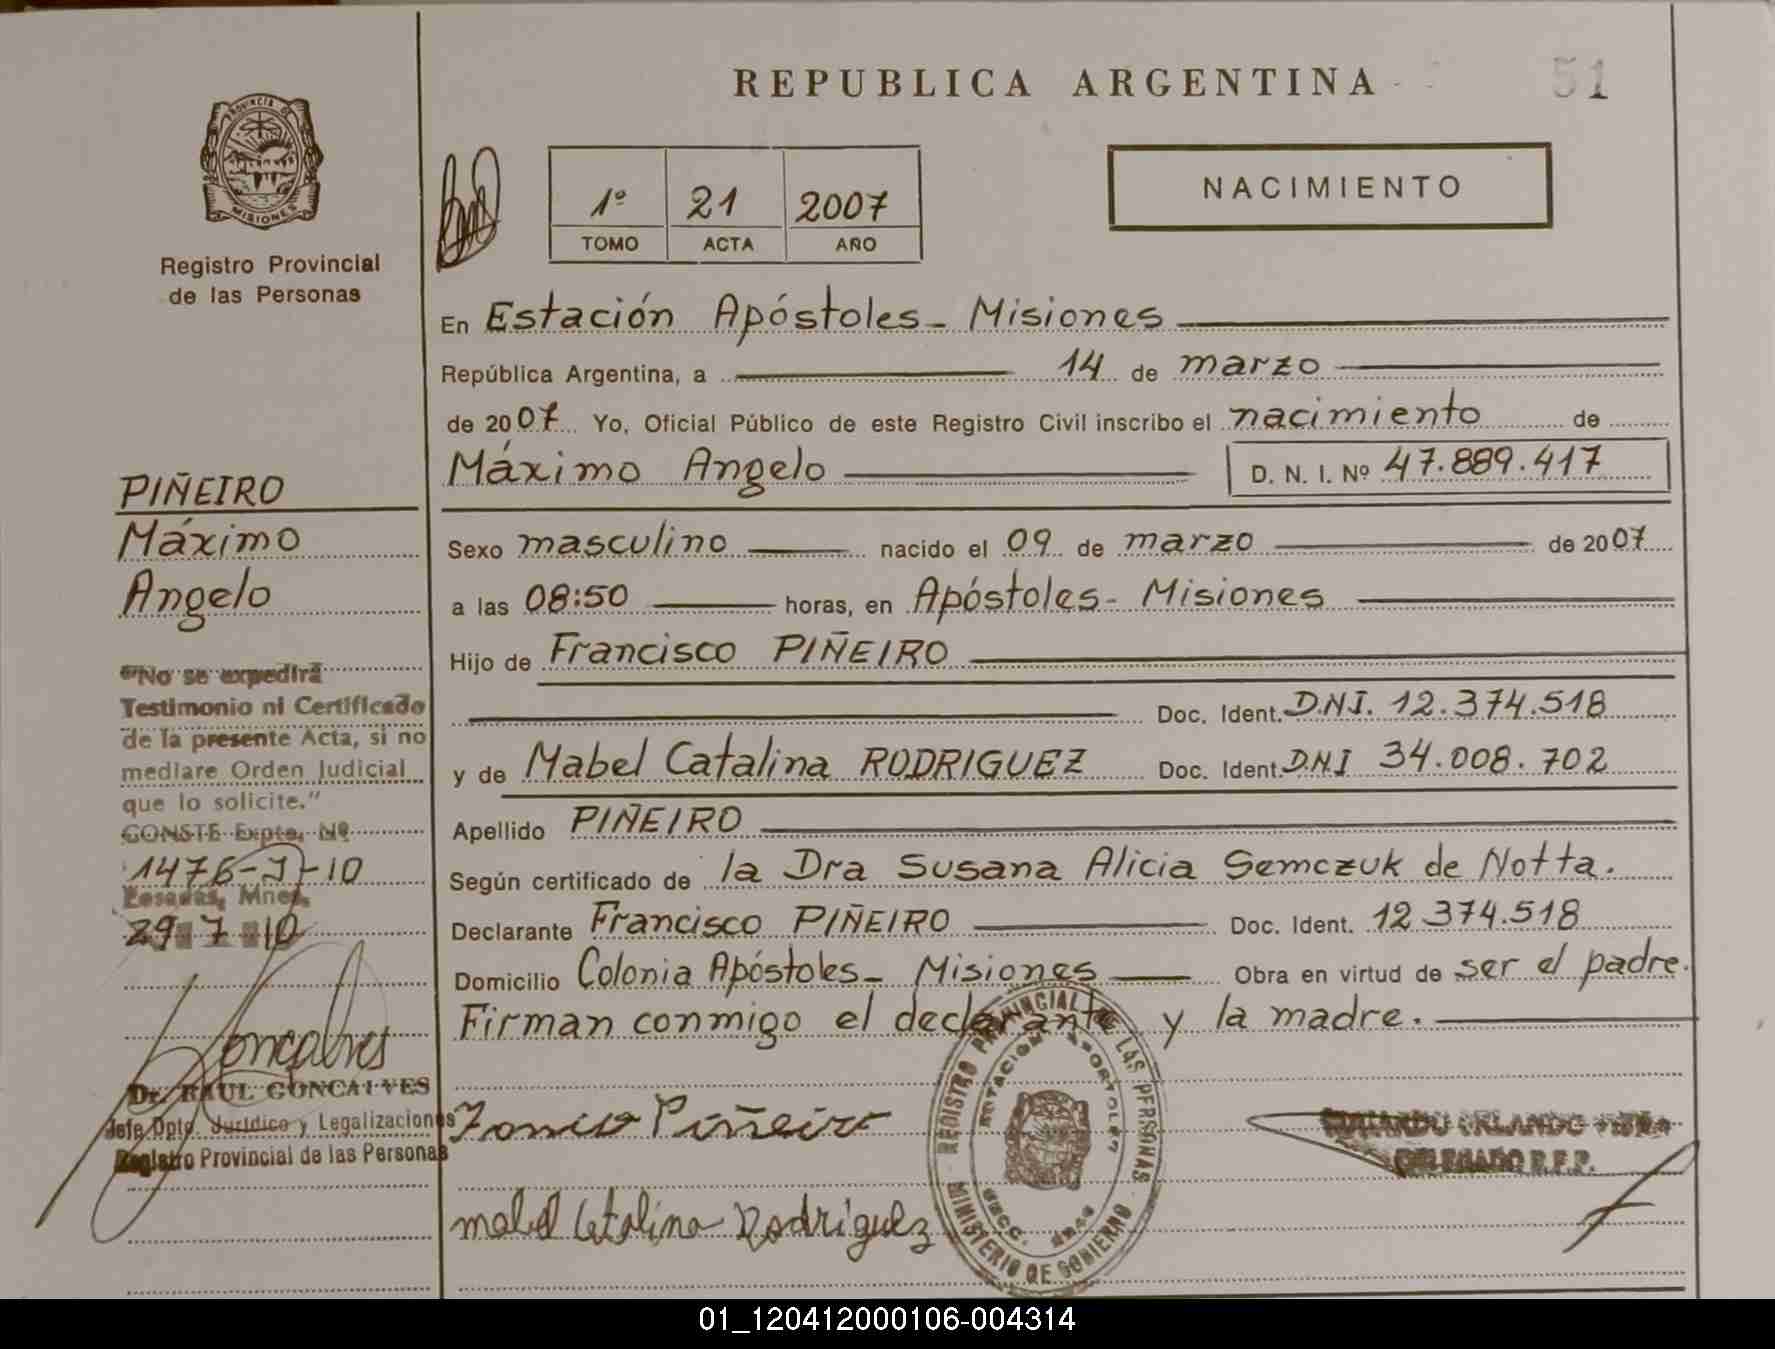 REPUBLICA ARGENTINA
51
PROVINCIA DE
MISIONES
Registro Provincial
de las Personas
1º 21 2007
TOMO ACTA AÑO
NACIMIENTO
En Estación Apóstoles - Misiones
República Argentina, a 14 de marzo
de 2007 Yo, Oficial Público de este Registro Civil inscribo el nacimiento de
Máximo Angelo D. N. I. Nº 47.889.417
Sexo masculino nacido el 09 de marzo de 2007
a las 08:50 horas, en Apóstoles - Misiones
Hijo de Francisco PIÑEIRO
Doc. Ident. D.N.I. 12.374.518
y de Mabel Catalina RODRIGUEZ Doc. Ident. DNI 34.008.702
Apellido PIÑEIRO
Según certificado de la Dra Susana Alicia Semczuk de Notta.
Declarante Francisco PIÑEIRO Doc. Ident. 12.374.518
Domicilio Colonia Apóstoles - Misiones Obra en virtud de ser el padre.
Firman conmigo el declarante y la madre.
PIÑEIRO
Máximo
Angelo
"No se expedirá
Testimonio ni Certificado
de la presente Acta, si no
mediare Orden Judicial
que lo solicite."
CONSTE Expte. Nº
1476-J-10
Posadas, Mnes.
29 7 10
Goncalves
Dr. RAUL GONCALVES
Jefe Dpto. Jurídico y Legalizaciones
Registro Provincial de las Personas
Piñeiro
Mabel Catalina Rodriguez
REGISTRO PROVINCIAL DE LAS PERSONAS
MINISTERIO DE GOBIERNO
ESTACION APOSTOLES
ORLANDO
DELEGADO R.P.P.
01_120412000106-004314